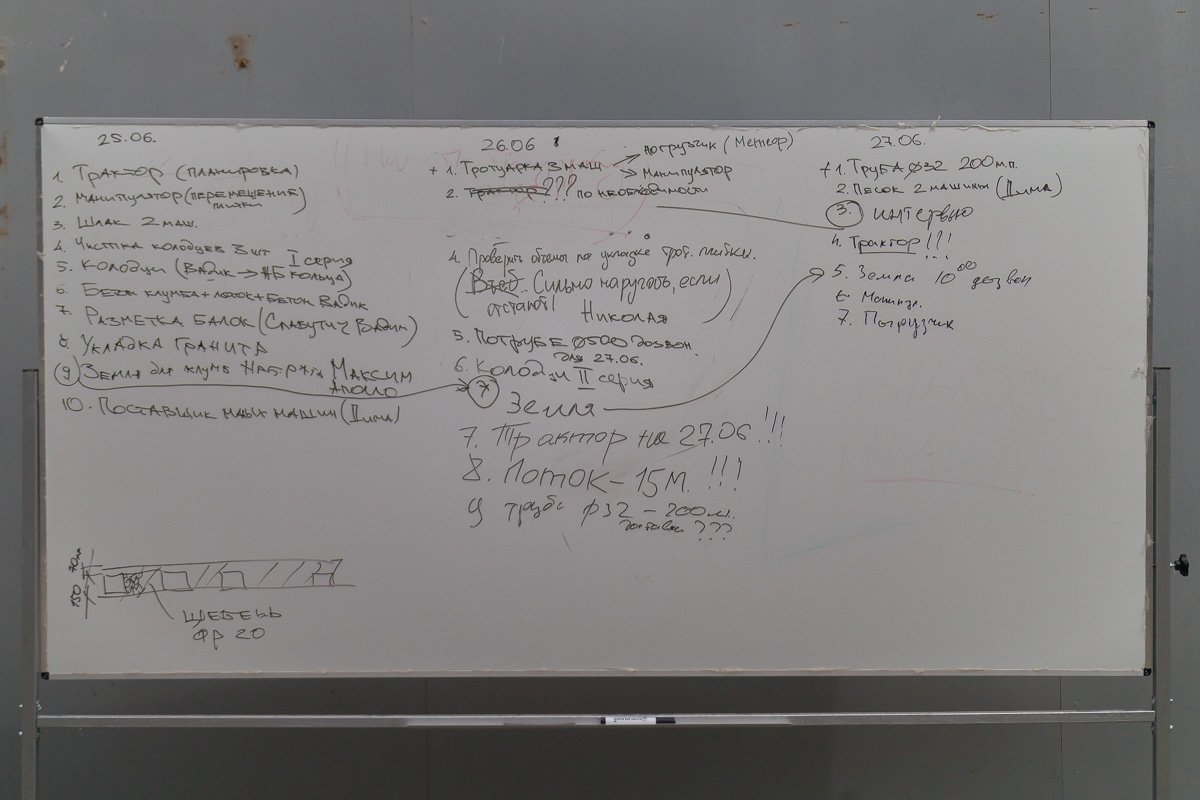 25.06.
1. Трактор (планировка)
2. Манипулятор (перемещение
плитки)
3. Шлак 2 маш.
4. Чистка колодцев 3 шт I серия
5. Колодцы (Вадик → ЖБ кольца)
6. Бетон клумба + лоток + бетон Вадик
7. Разметка балок (Славутич Вадим)
8. Укладка гранита
9 Земля для клумб Максим
Аполло
10. Поставщик малых машин (Дима)
70мм
150
щебень
фр 20
26.06
+ 1. Тротуарка 3 маш → погрузчик (Метеор)
→ манипулятор
2. Трактор??? по необходимости
4. Проверить объемы по укладке трот. плитки.
(Сильно наругать, если
отстают! Николая)
5. По трубе Ø500 дозвон.
для 27.06.
6. Колодцы II серия
7 Земля
7. Трактор на 27.06!!!
8. Лоток – 15 м. !!!
9 труба Ø32 – 200 м.п.
доставка ???
27.06.
+ 1. Труба Ø32 200 м.п.
2. Песок 2 машины (Дима)
3. интервью
4. Трактор!!!
5. Земля 10⁰⁰ дозвон
6. Манипул.
7. Погрузчик